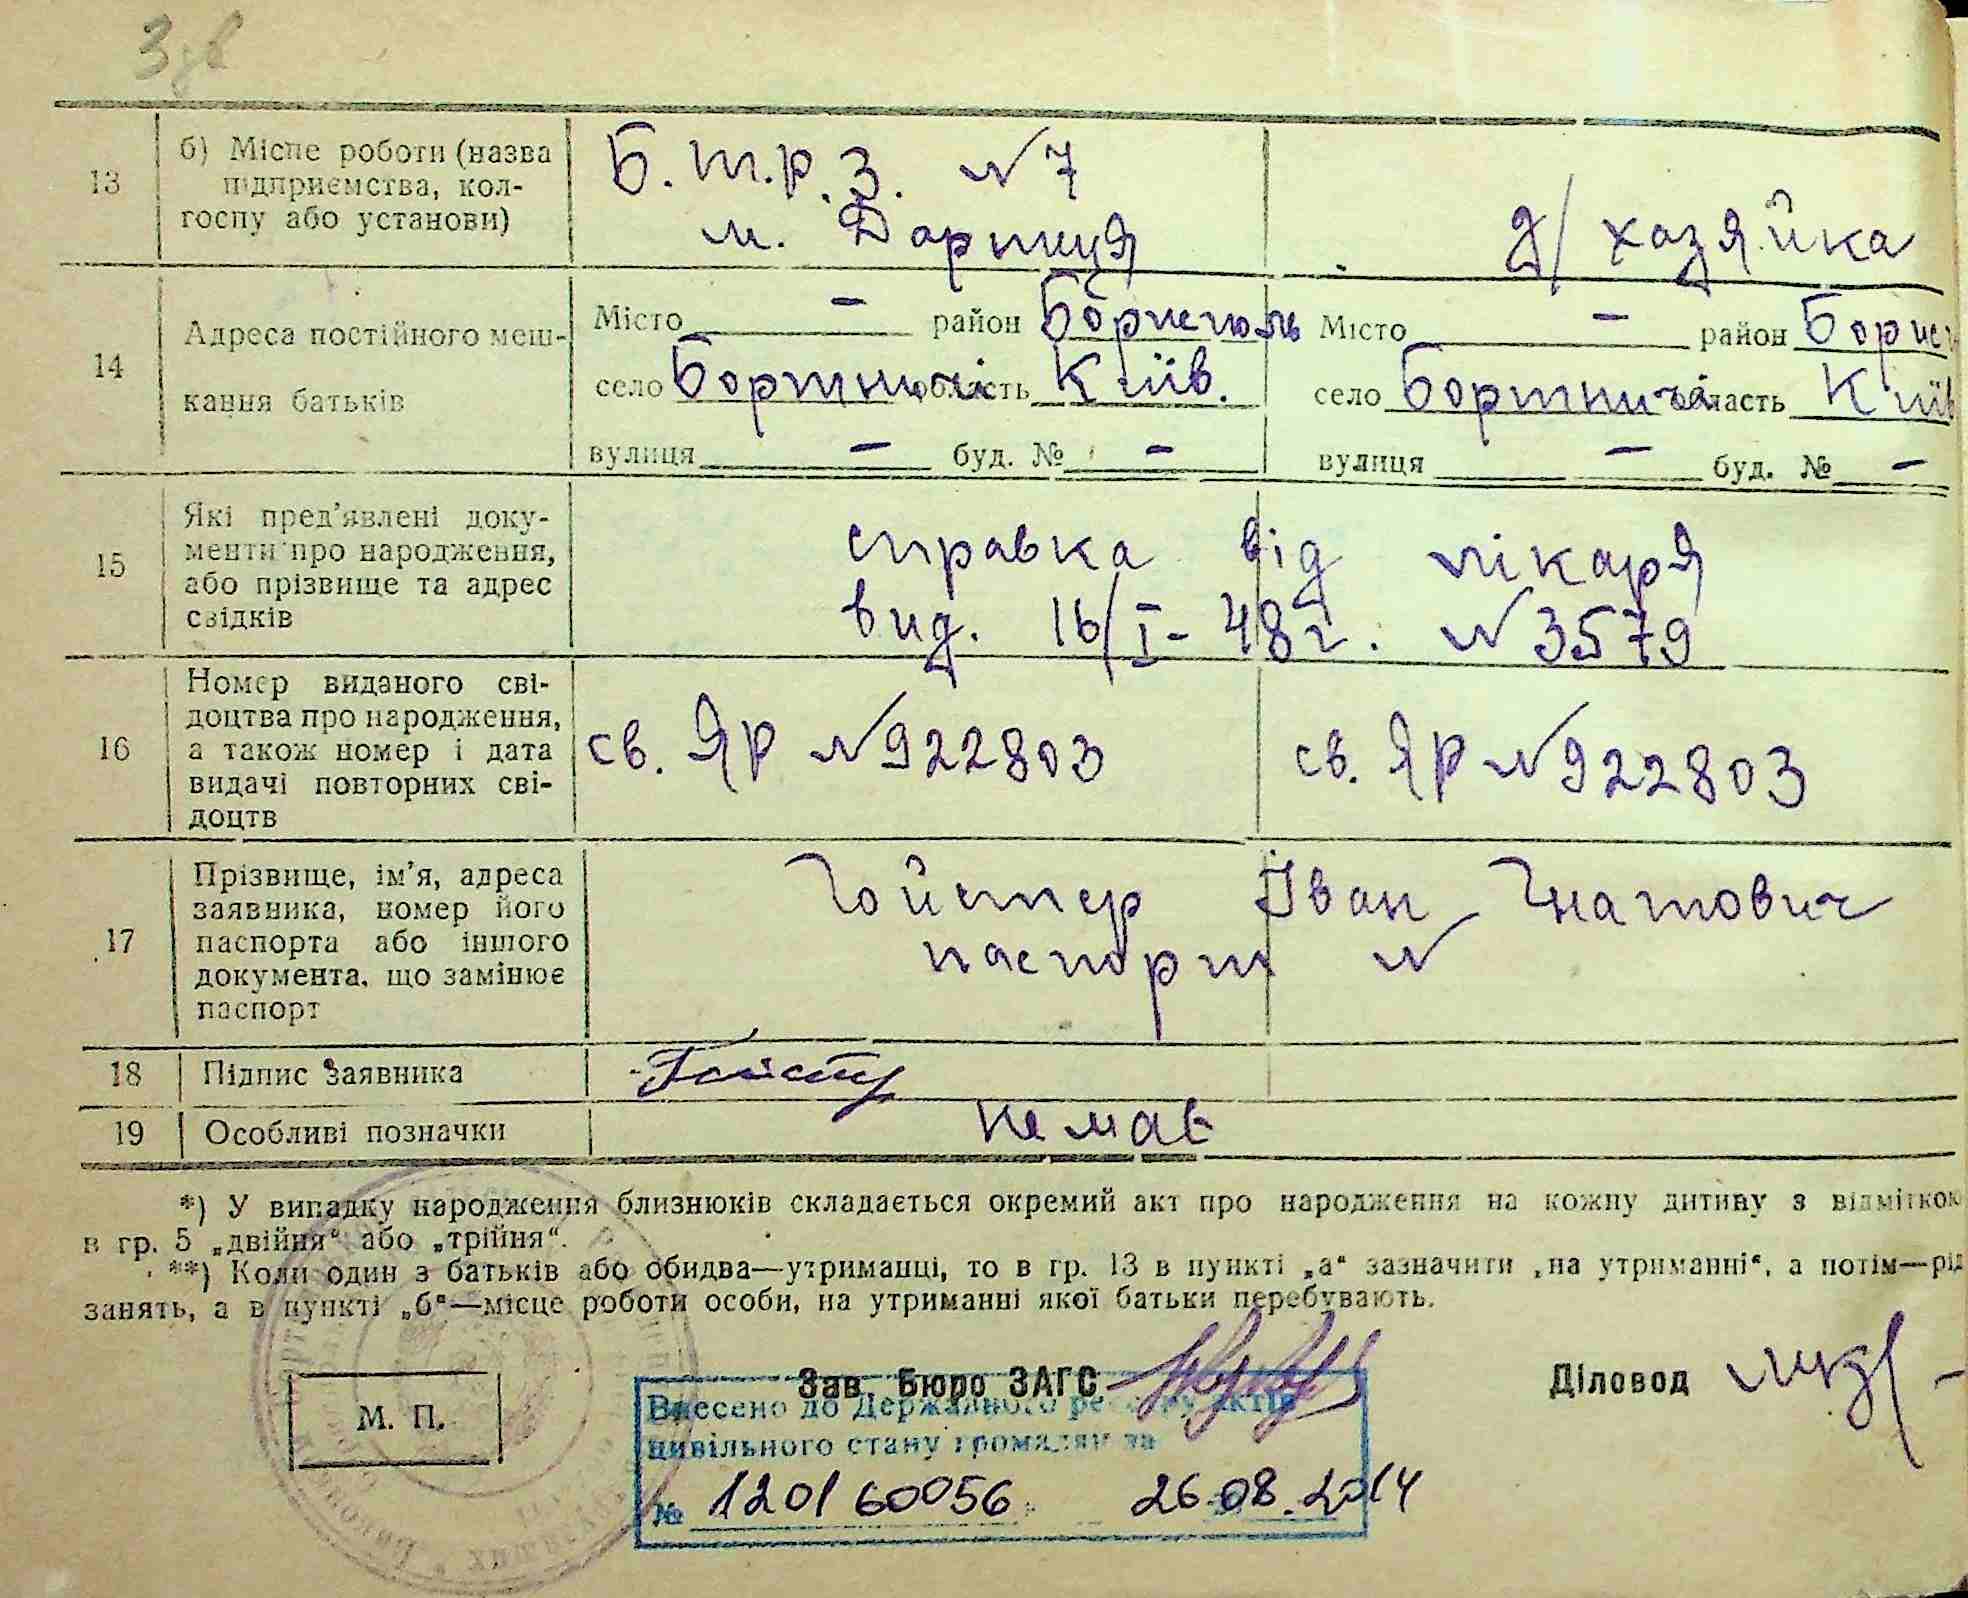 3 зв
13
б) Місце роботи (назва
підприємства, кол-
госпу або установи)
Б. т. р. з. № 7
м. Дарниця
д/ хазяйка
14
Адреса постійного меш-
кання батьків
Місто – район Бориспіль
село Бортничі область Київ.
вулиця – буд. № –
Місто – район Борисп
село Бортничі область Київ
вулиця – буд. № –
15
Які пред'явлені доку-
менти про народження,
або прізвище та адрес
свідків
справка від лікаря
вид. 16/I - 48 г. № 3579
16
Номер виданого сві-
доцтва про народження,
а також номер і дата
видачі повторних сві-
доцтв
св. ЯР № 922803
св. ЯР № 922803
17
Прізвище, ім'я, адреса
заявника, номер його
паспорта або іншого
документа, що замінює
паспорт
Гойстер Іван Гнатович
паспорт №
18
Підпис заявника
19
Особливі позначки
немає
*) У випадку народження близнюків складається окремий акт про народження на кожну дитину з відміткою
в гр. 5 „двійня“ або „трійня“.
**) Коли один з батьків або обидва—утриманці, то в гр. 13 в пункті „а“ зазначити „на утриманні“, а потім—рід
занять, а в пункті „б“—місце роботи особи, на утриманні якої батьки перебувають.
М. П.
Зав. Бюро ЗАГС
Діловод
Внесено до Державного реєстру актів
цивільного стану громадян за
№ 120160056 26.08.2014